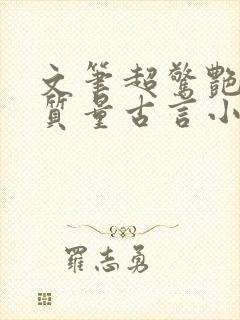 文筆超驚艷
質量古言小
羅志勇